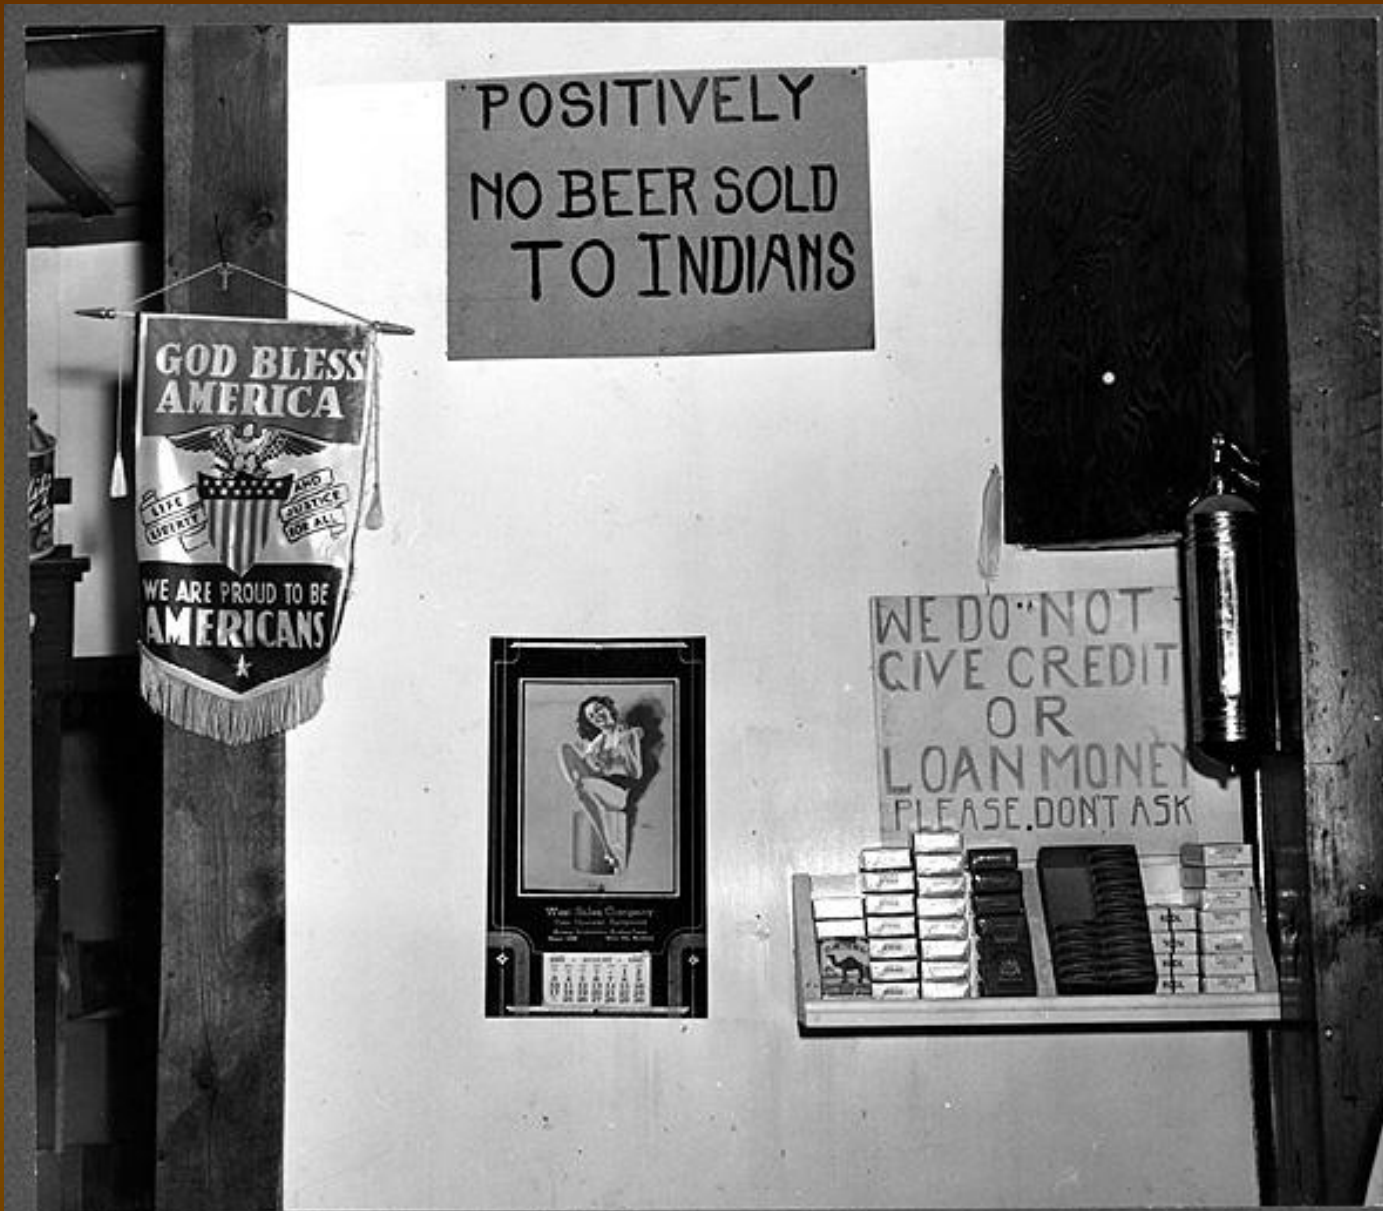 POSITIVELY
NO BEER SOLD
TO INDIANS
GOD BLESS
AMERICA
LIFE
LIBERTY
AND
JUSTICE
FOR ALL
WE ARE PROUD TO BE
AMERICANS
WE DO NOT
GIVE CREDIT
OR
LOAN MONEY
PLEASE. DON'T ASK
West Sales Company
AUGUST
CAMEL
KOOL
KOOL
KOOL
KOOL